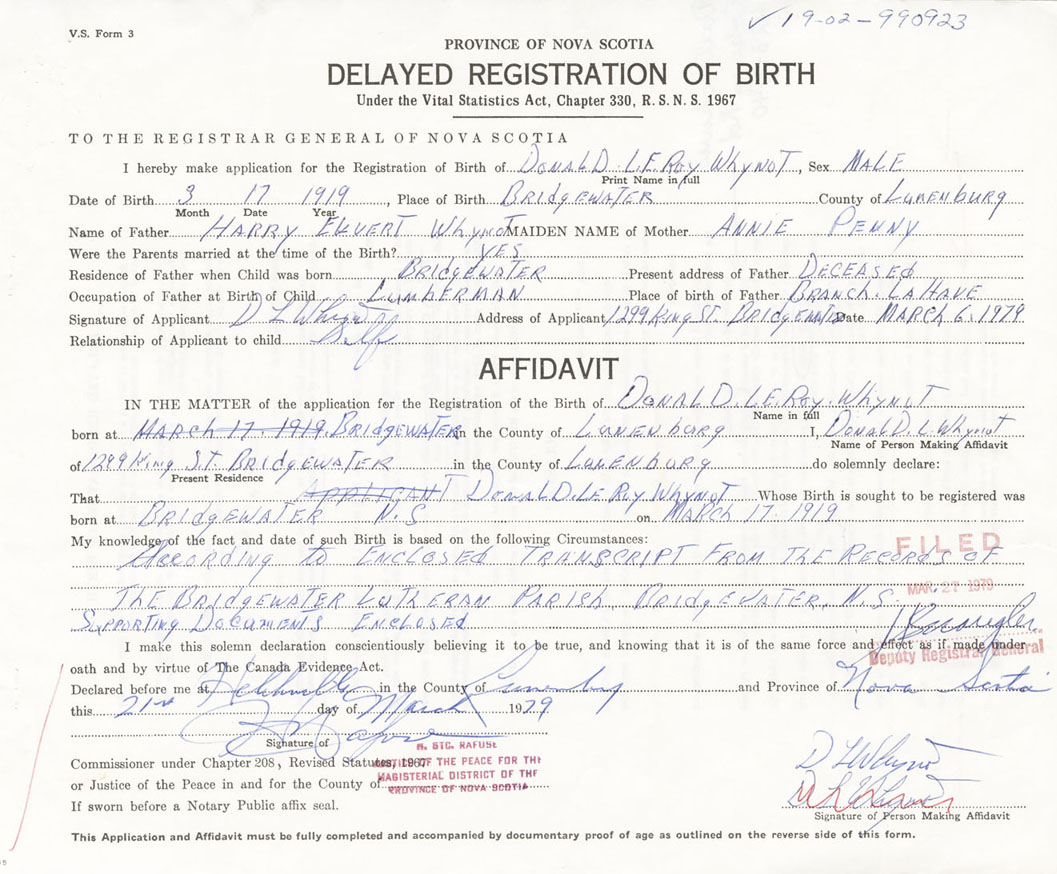 V.S. Form 3
✓ 19-02-990923
PROVINCE OF NOVA SCOTIA
DELAYED REGISTRATION OF BIRTH
Under the Vital Statistics Act, Chapter 330, R.S.N.S. 1967
TO THE REGISTRAR GENERAL OF NOVA SCOTIA
I hereby make application for the Registration of Birth of DONALD. LE. Roy. WHYNOT, Sex MALE
Print Name in full
Date of Birth 3 17 1919, Place of Birth BRIDGEWATER County of LUNENBURG
Month Date Year
Name of Father HARRY WHYNOT MAIDEN NAME of Mother ANNIE PENNY
Were the Parents married at the time of the Birth? YES
Residence of Father when Child was born BRIDGEWATER Present address of Father DECEASED
Occupation of Father at Birth of Child LUMBERMAN Place of birth of Father BRANCH. LAHAVE
Signature of Applicant D L Whynot Address of Applicant 1299 KING ST. BRIDGEWATER Date MARCH 6. 1979
Relationship of Applicant to child Self
AFFIDAVIT
IN THE MATTER of the application for the Registration of the Birth of DONALD. LE. Roy. WHYNOT
Name in full
born at MARCH 17. 1919. BRIDGEWATER in the County of LUNENBURG I, DONALD. L. Whynot
Name of Person Making Affidavit
of 1299 KING. ST. BRIDGEWATER in the County of LUNENBURG do solemnly declare:
Present Residence
That APPLICANT DONALD. LE Roy. WHYNOT Whose Birth is sought to be registered was
born at BRIDGEWATER N.S on MARCH 17. 1919
My knowledge of the fact and date of such Birth is based on the following Circumstances:
ACCORDING TO ENCLOSED TRANSCRIPT FROM THE RECORDS OF
FILED
THE BRIDGEWATER LUTHERAN PARISH, BRIDGEWATER, N.S.
MAR 27 1979
SUPPORTING DOCUMENTS ENCLOSED
I make this solemn declaration conscientiously believing it to be true, and knowing that it is of the same force and effect as if made under
Deputy Registrar General
oath and by virtue of The Canada Evidence Act.
Declared before me at in the County of Lunenburg and Province of Nova Scotia
this 21st day of March 1979
Signature of
H. STC. RAFUSE
Commissioner under Chapter 208, Revised Statutes, 1967
JUSTICE OF THE PEACE FOR THE
or Justice of the Peace in and for the County of
MAGISTERIAL DISTRICT OF THE
PROVINCE OF NOVA SCOTIA
If sworn before a Notary Public affix seal.
D L Whynot
Signature of Person Making Affidavit
This Application and Affidavit must be fully completed and accompanied by documentary proof of age as outlined on the reverse side of this form.